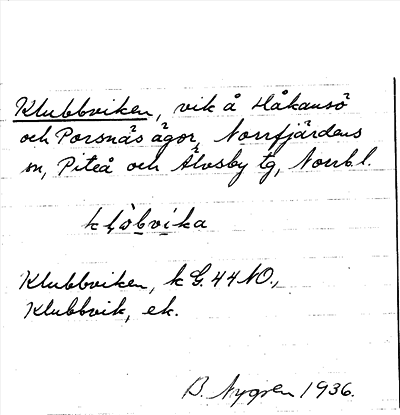 Klubbviken, vik å Håkansö
och Porsnäs ägor, Norrfjärdens
sn, Piteå och Älvsby tg, Norrb l.
klòbvíka
Klubbviken, k G. 44 NO.,
Klubbvik, ek.
B. Nygren 1936.